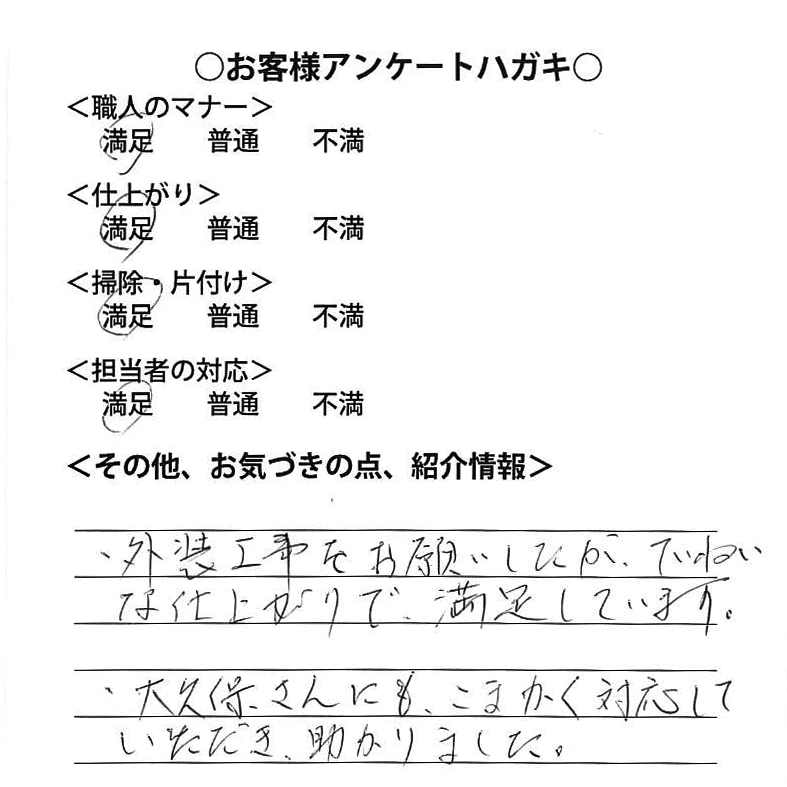 ○お客様アンケートハガキ○
＜職人のマナー＞
満足　普通　不満
＜仕上がり＞
満足　普通　不満
＜掃除・片付け＞
満足　普通　不満
＜担当者の対応＞
満足　普通　不満
＜その他、お気づきの点、紹介情報＞
・外装工事をお願いしたが、ていねい
な仕上がりで、満足しています。
・大久保さんにも、こまかく対応して
いただき、助かりました。